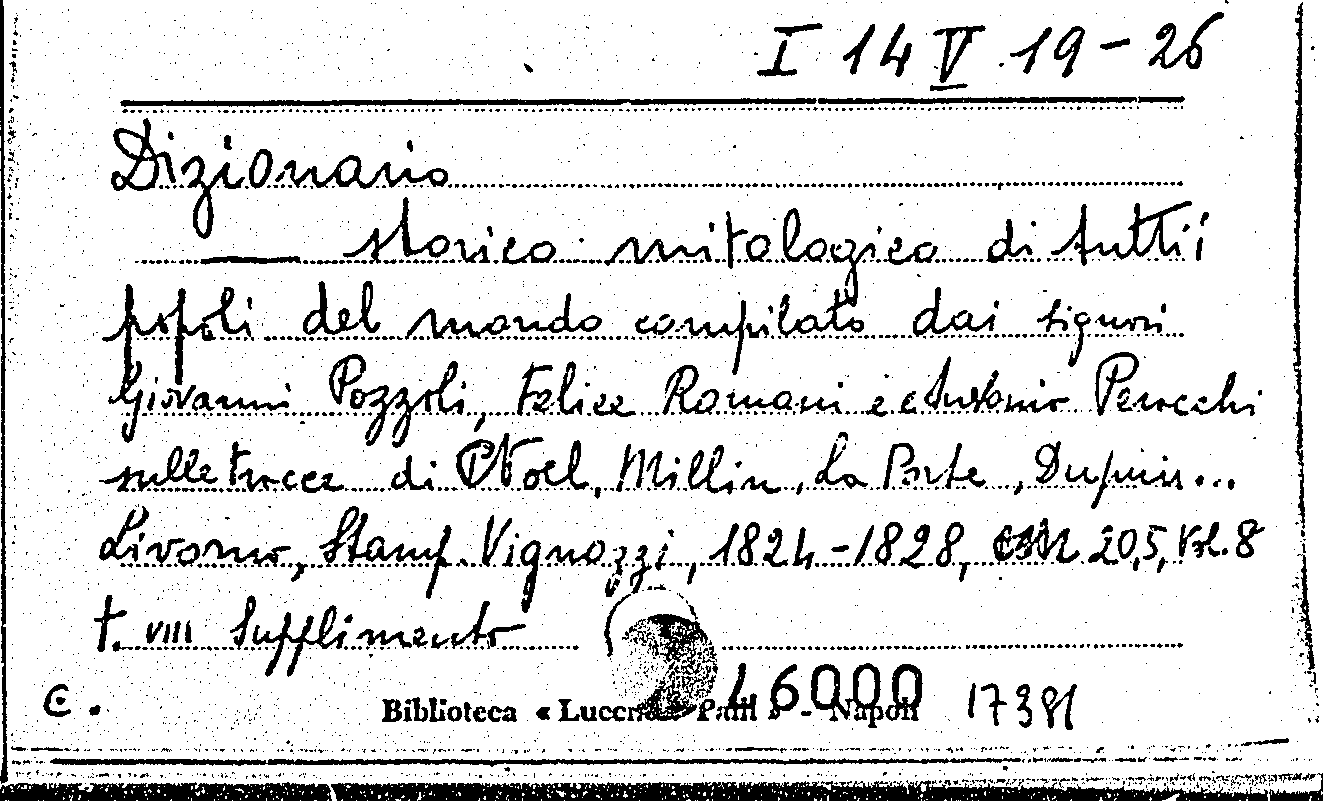 I 14 V 19-26
Dizionario
— storico mitologico di tutti i
popoli del mondo compilato dai signori
Giovanni Pozzoli, Felice Romani e Antonio Peracchi
sulle tracce di Noel, Millin, La Porte, Dupuis...
Livorno, Stamp. Vignozzi, 1824-1828, 20,5, Vol. 8
t. VIII Supplimento
C. Biblioteca « Lucchesi Palli » - Napoli 46000 17381